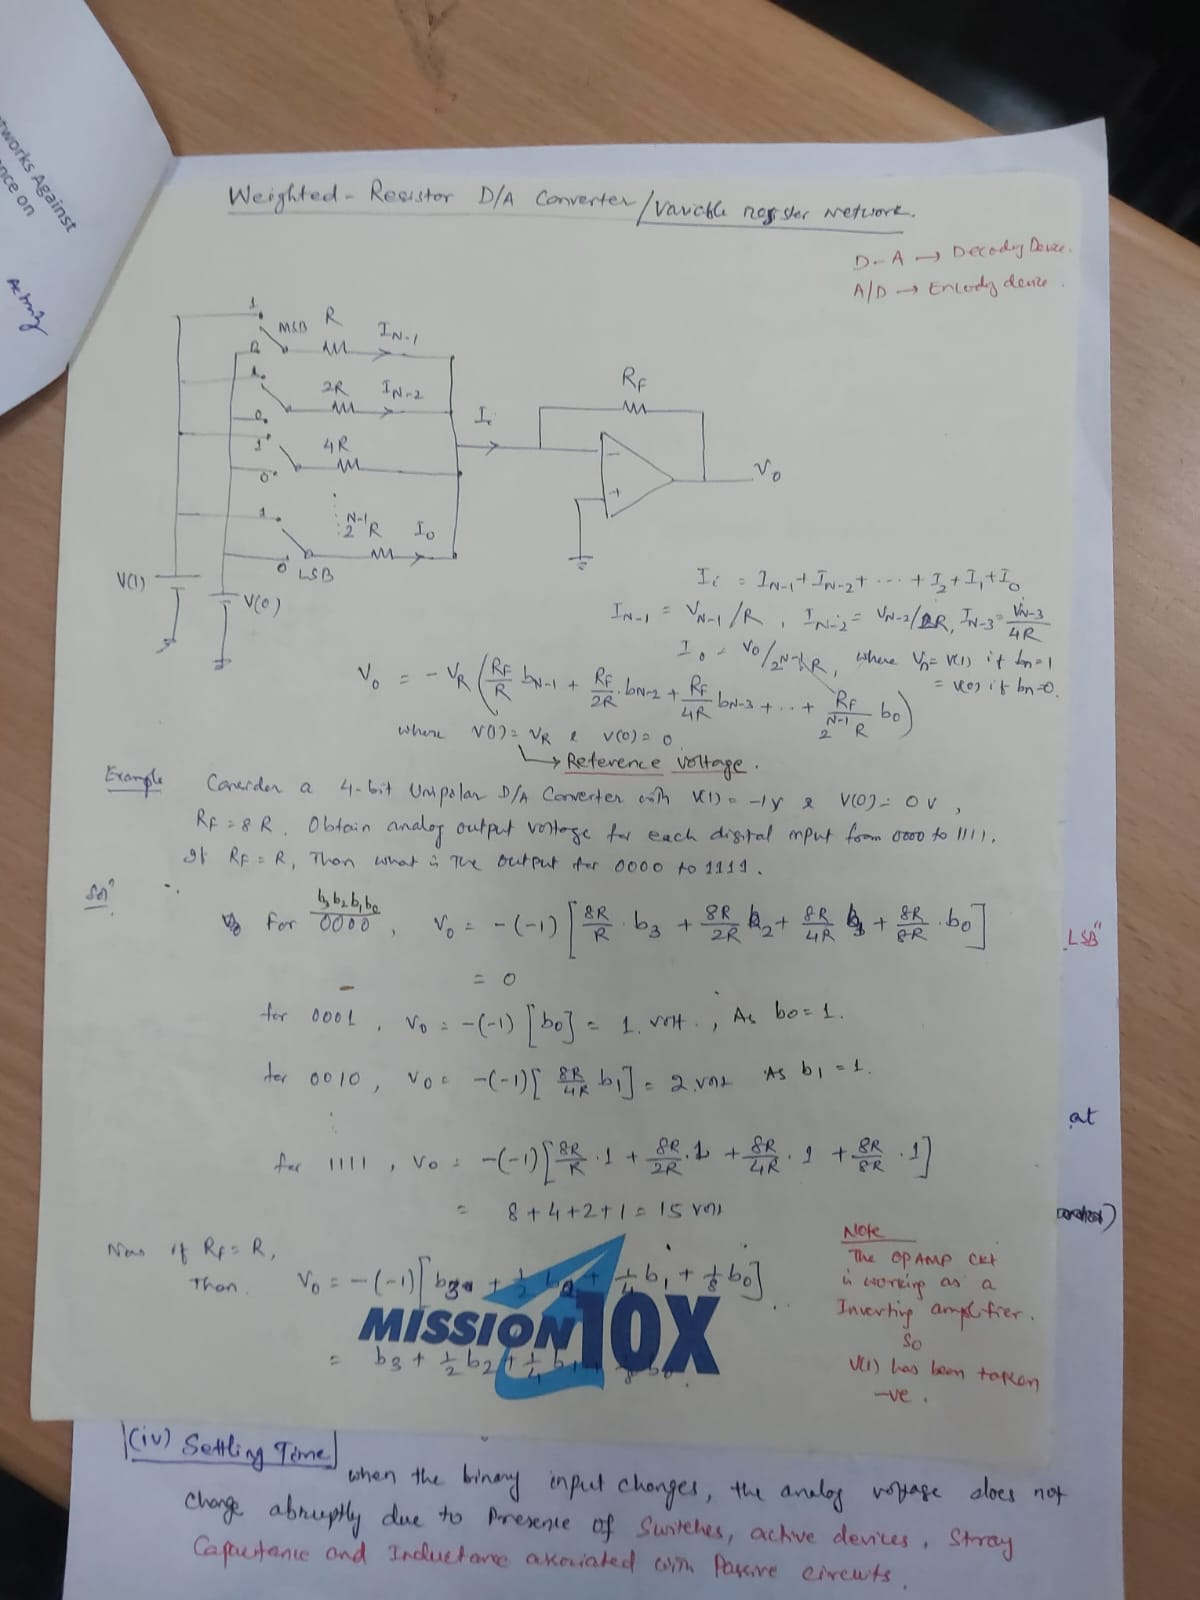 tworks Against
nce on
Activity
Weighted - Resistor D/A Converter/Variable register network.
D-A → Decoding Device.
A/D → Encoding device.
1
MSB R I_{N-1}
0
1
2R I_{N-2}
0
1 4R
0
I_i
R_F
- +
V_0
1 2^{N-1}R I_0
0 LSB
V(1)
V(0)
I_i = I_{N-1} + I_{N-2} + ... + I_2 + I_1 + I_0
I_{N-1} = V_{N-1}/R , I_{N-2} = V_{N-2}/2R, I_{N-3} = V_{N-3}/4R
I_0 = V_0/2^{N-1}R, where V_n = V(1) if b_n=1
= V(0) if b_n=0.
V_0 = -V_R (R_F/R b_{N-1} + R_F/2R . b_{N-2} + R_F/4R b_{N-3} + .. + R_F/2^{N-1}R b_0)
where V(1) = V_R & V(0) = 0
→ Reference voltage .
Example Consider a 4-bit Unipolar D/A Converter with V(1) = -1V & V(0) = 0V,
R_F = 8R. Obtain analog output voltage for each digital input from 0000 to 1111.
If R_F = R, Then what is the output for 0000 to 1111.
Solⁿ
b_3 b_2 b_1 b_0
For 0000 , V_0 = -(-1) [8R/R . b_3 + 8R/2R b_2 + 8R/4R b_1 + 8R/8R . b_0]
= 0
for 0001 , V_0 = -(-1) [b_0] = 1. volt . , As b_0 = 1.
for 0010 , V_0 = -(-1)[8R/4R b_1] = 2 volt As b_1 = 1.
for 1111 , V_0 = -(-1)[8R/R . 1 + 8R/2R . 1 + 8R/4R . 1 + 8R/8R . 1]
= 8 + 4 + 2 + 1 = 15 volt
Now if R_F = R,
Then. V_0 = -(-1)[b_3 + 1/2 b_2 + 1/4 b_1 + 1/8 b_0]
= b_3 + 1/2 b_2 + 1/4 b_1 + 1/8 b_0
MISSION10X
Note
The OPAMP CKT
is working as a
Inverting amplifier.
So
V(1) has been taken
-ve .
LSB"
at
(iv) Settling Time
when the binary input changes, the analog voltage does not
change abruptly due to Presence of Switches, active devices, Stray
Capacitance and Inductance associated with Passive circuits.